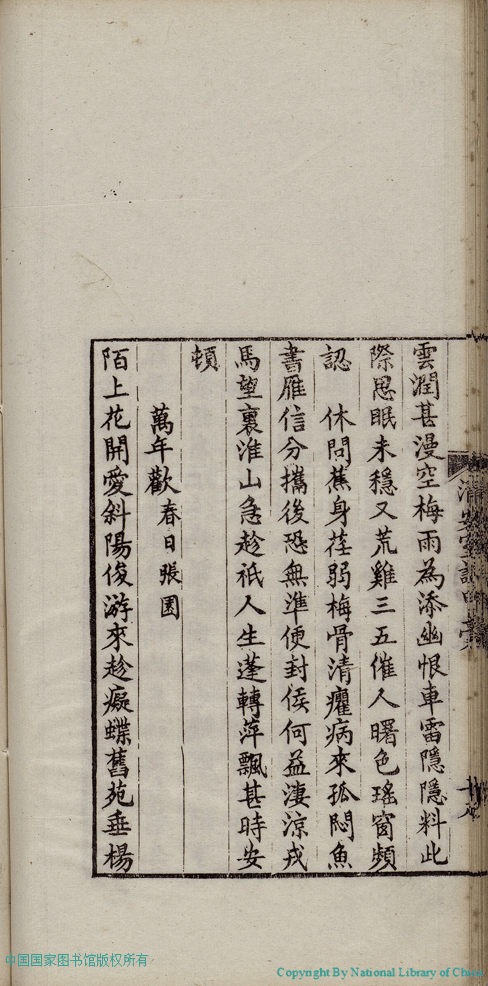 雲潤甚漫空梅雨為添幽恨車雷隱隱料此
際思眠未穩又荒雞三五催人曙色瑤窗頻
認　休問蕉身荏弱梅骨清癯病來孤悶魚
書雁信分攜後恐無準便封侯何益淒涼戎
馬望裏淮山急趁祇人生蓬轉萍飄甚時安
頓
萬年歡春日張園
陌上花開愛斜陽俊游來趁癡蝶舊苑垂楊
中国国家图书馆版权所有
Copyright By National Library of